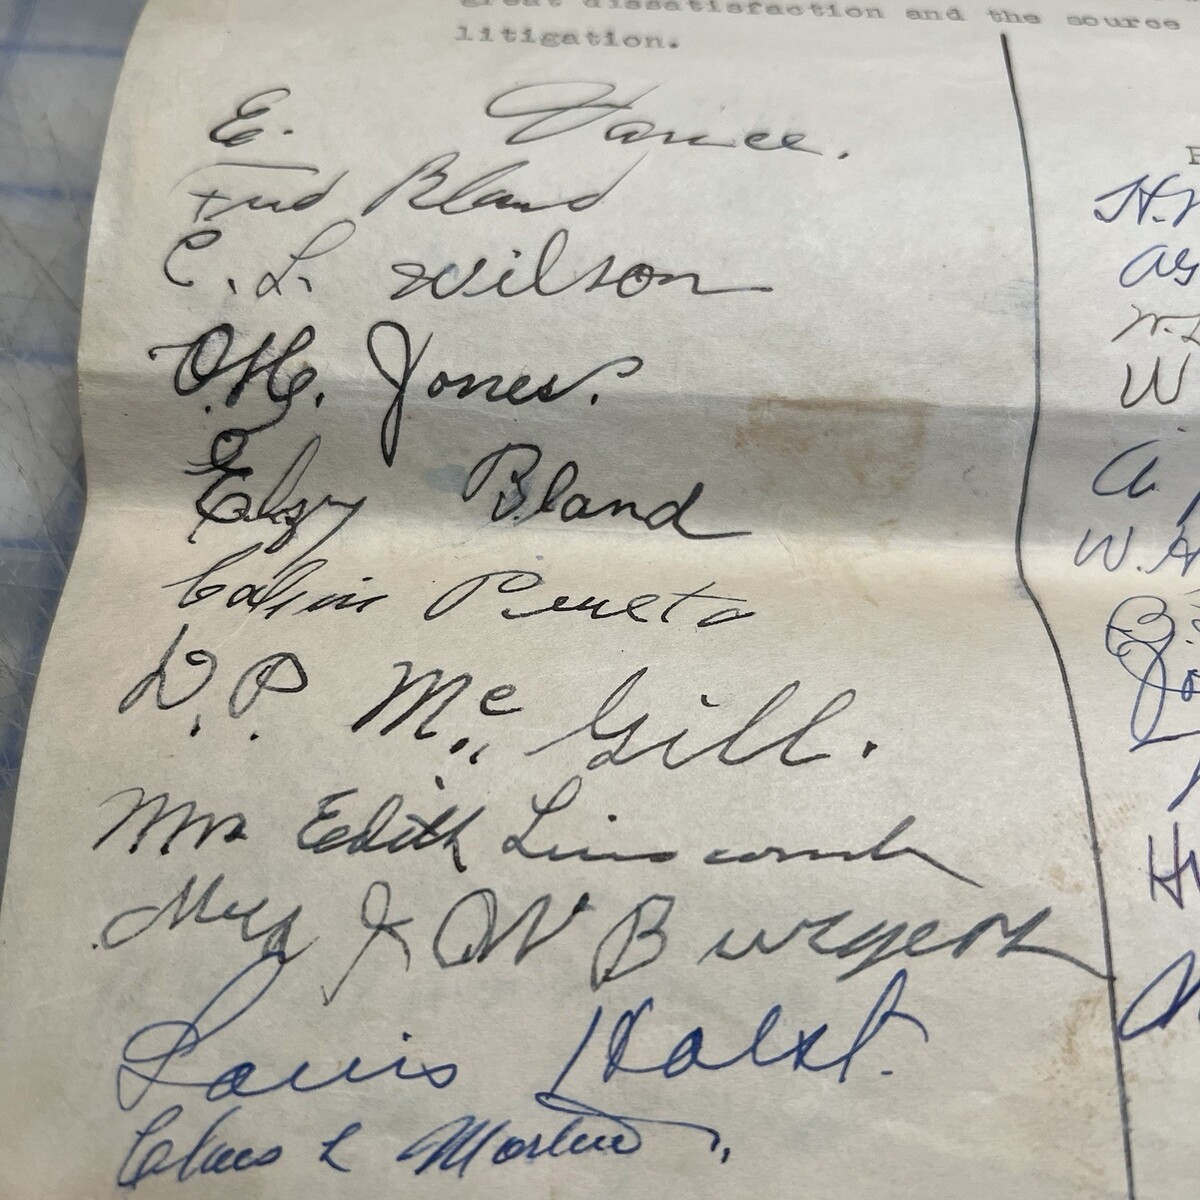 great dissatisfaction and the source
litigation.
E. Vance.
Fred Bland
C. L. Wilson
O.H. Jones.
Elzy Bland
Calvin
D. P. McGill.
Mrs Edith Linscomb
Mrs J W Burgess
Louis Holst.
L
H.
W.
W
a.
W. H
B.
Jo
H